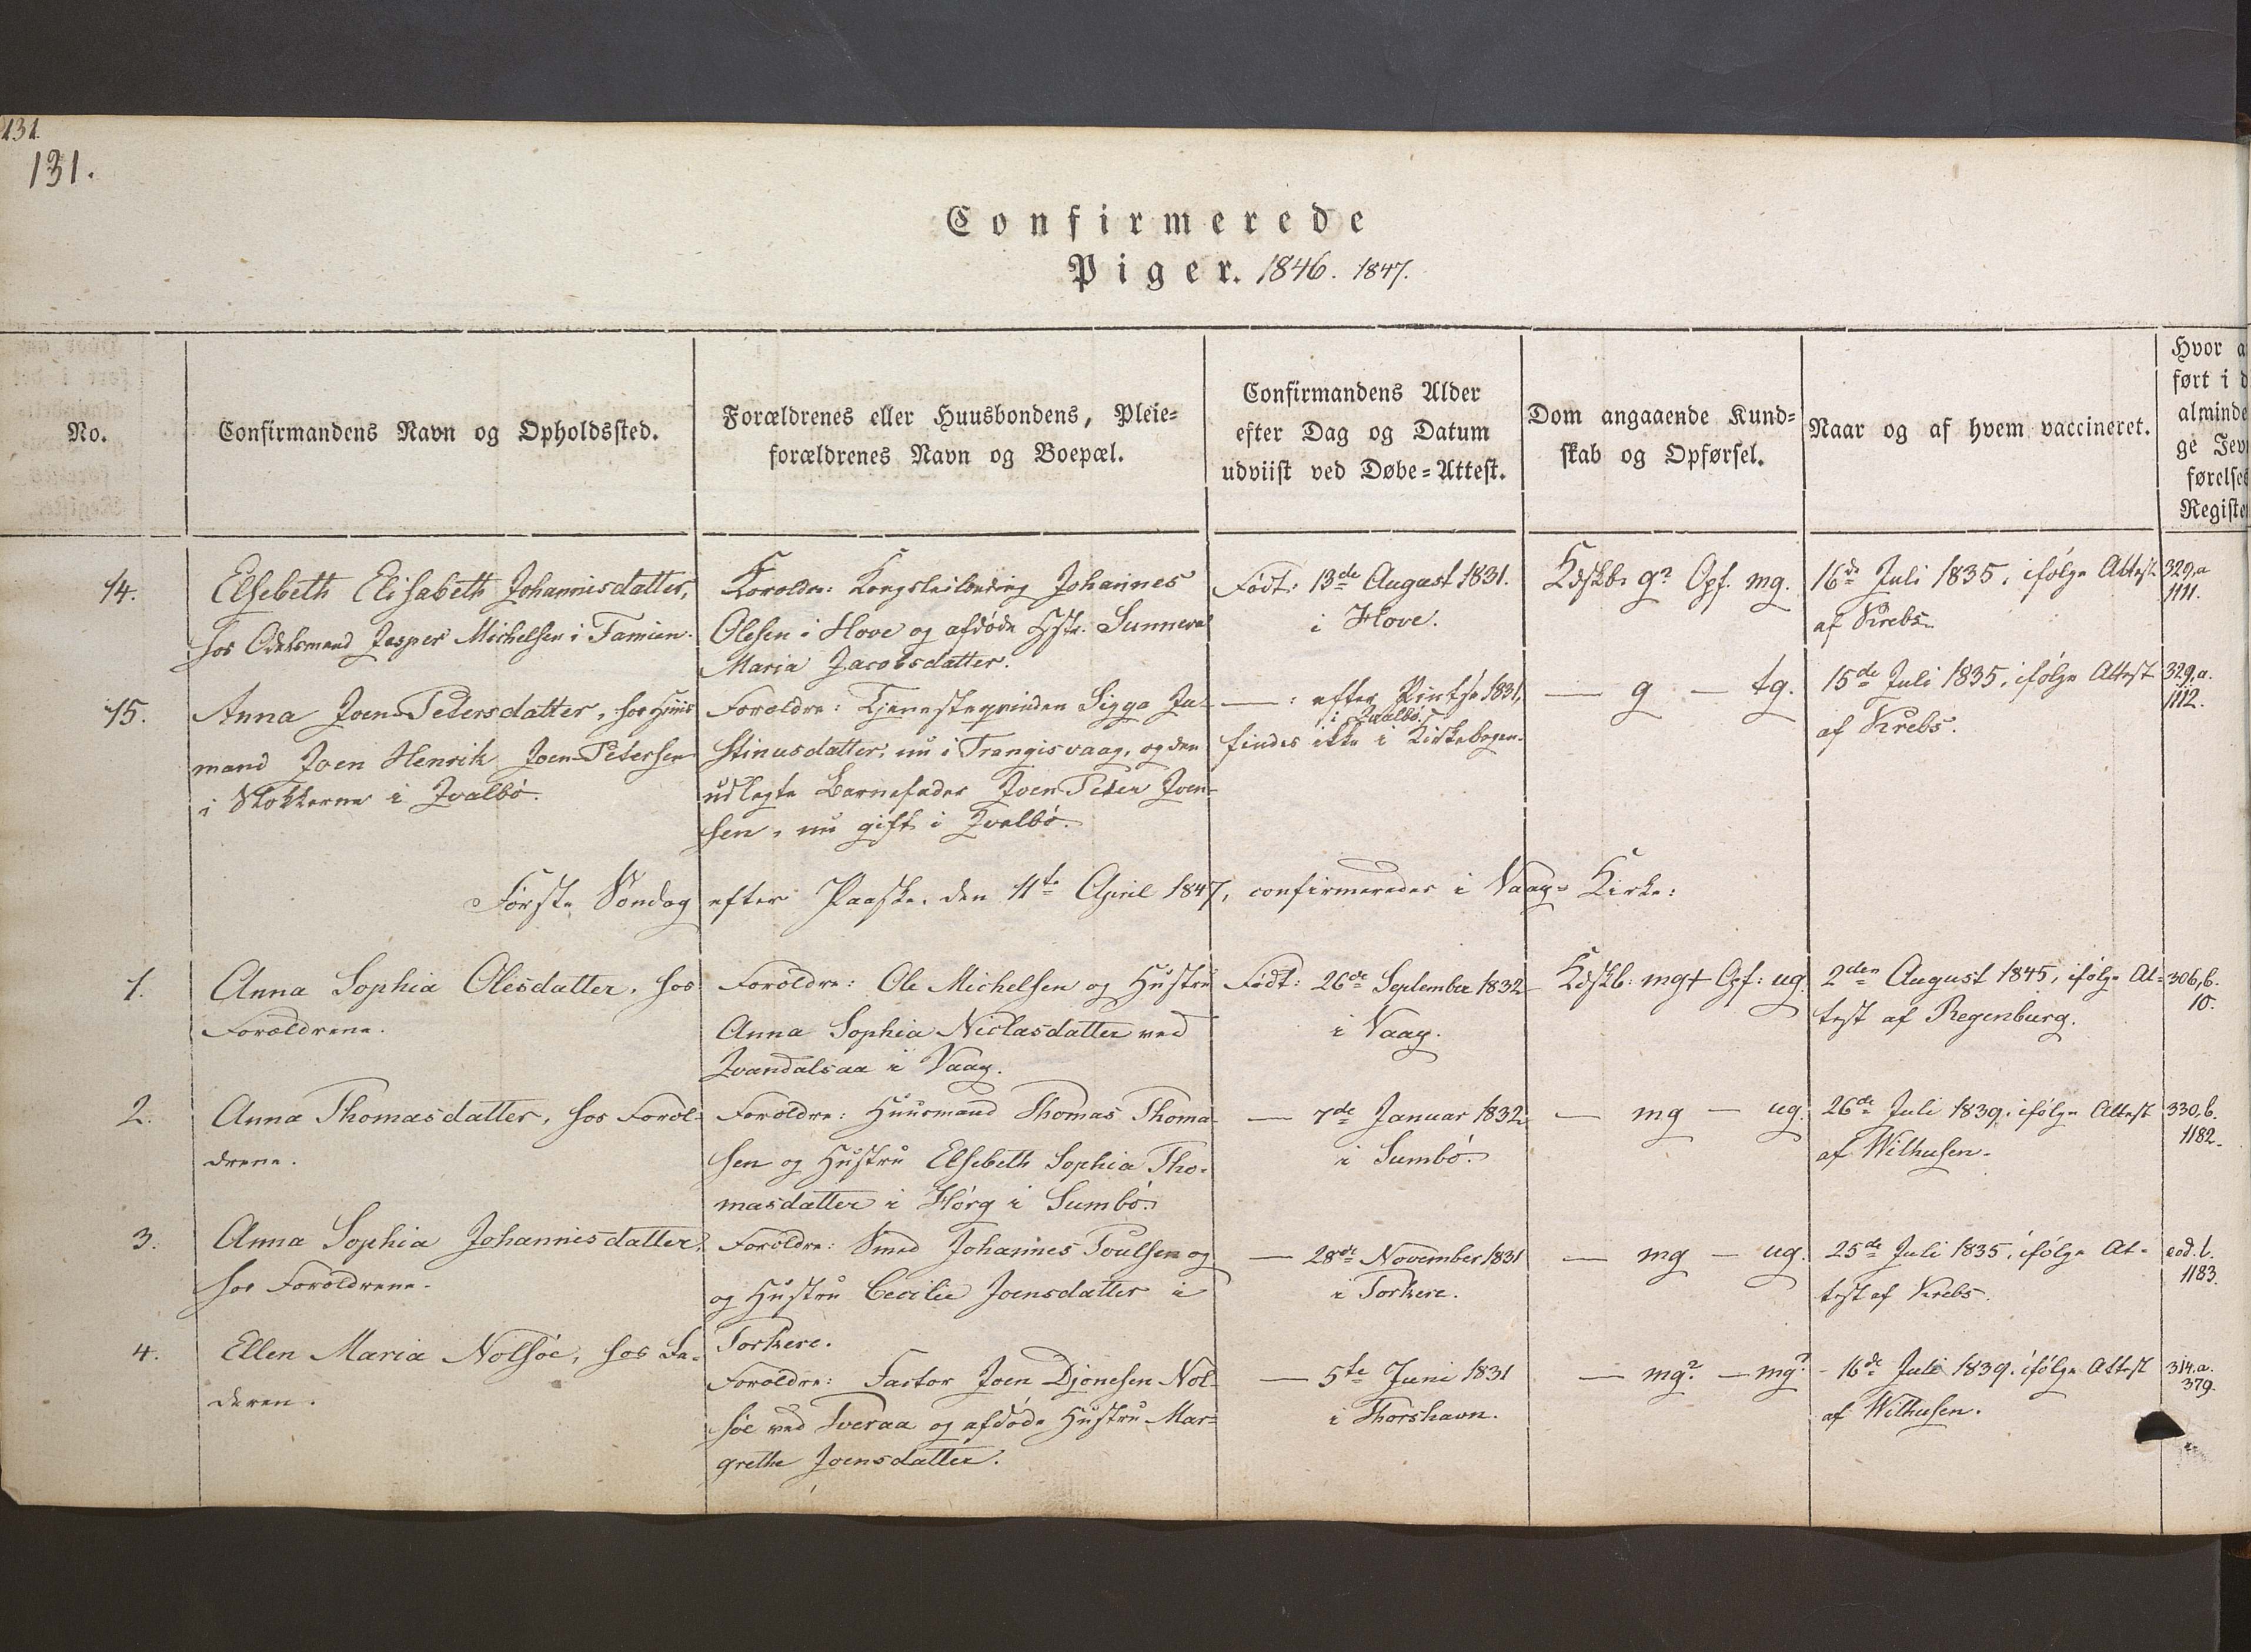 131.
131.
Confirmerede
Piger. 1846. 1847.
No.
Confirmandens Navn og Opholdssted.
Forældrenes eller Huusbondens, Pleie-
forældrenes Navn og Boepæl.
Confirmandens Alder
efter Dag og Datum
udviist ved Døbe-Attest.
Dom angaaende Kund-
skab og Opførsel.
Naar og af hvem vaccineret.
Hvor a
ført i d
alminde
ge Jev
førelses
Registe
14.
Elsebeth Elisabeth Johannisdatter,
hos Odelsmand Jesper Michelsen i Famien.
Foroldre: Kongsleilending Johannes
Olesen i Hove og afdøde Hstr. Sunneva
Maria Jacobsdatter.
Født: 13de August 1831.
i Hove.
Kdskb: g? Opf. mg.
16de Juli 1835, ifølge Attest
af Krebs.
329,a
1111.
15.
Anna Joen-Petersdatter, hos Huus
mand Joen Henrik Joen-Petersen
i Stokkerne i Qvalbø.
Foroldre: Tjenesteqvinden Sigga Ja-
stinusdatter, nu i Trangisvaag, og den
udlagte Barnefader Joen Peter Joen-
sen, nu gift i Qvalbø.
— : efter Pintse 1831,
i Qvalbø.
findes ikke i Kirkebogen.
— g — tg.
15de Juli 1835, ifølge Attest
af Krebs.
329.a.
1112.
Første Søndag efter Paaske, den 11te April 1847, confirmeredes i Vaag-Kirke:
1.
Anna Sophia Olesdatter, hos
Forældrene.
Foroldre: Ole Michelsen og Hustru
Anna Sophia Niclasdatter ved
Qvandalsaa i Vaag.
Født: 26de September 1832
i Vaag.
Kdskb: mg+ Opf: ug.
2den August 1845, ifølge At-
test af Regenburg.
306,b.
10.
2.
Anna Thomasdatter, hos Forol-
drene.
Foroldre: Huusmand Thomas Thoma-
sen og Hustru Elsebeth Sophia Tho-
masdatter i Hørg i Sumbø.
— 7de Januar 1832
i Sumbø.
— mg — ug.
26de Juli 1839, ifølge Attest
af Wilhusen.
330,b.
1182.
3.
Anna Sophia Johannisdatter,
hos Foroldrene.
Foroldre: Smed Johannes Poulsen og
og Hustru Cecilie Joensdatter i
Porkere.
— 28de November 1831
i Porkere.
— mg — ug.
25de Juli 1835, ifølge At-
test af Krebs.
eod. b.
1183.
4.
Ellen Maria Nolsöe, hos Fa-
deren.
Foroldre: Factor Joen Djonesen Nol-
söe ved Tveraa og afdøde Hustru Mar-
grethe Joensdatter.
— 5te Juni 1831
i Thorshavn.
— mg? — mg?
- 16de Juli 1839, ifølge Attest
af Wilhusen.
314.a.
379.